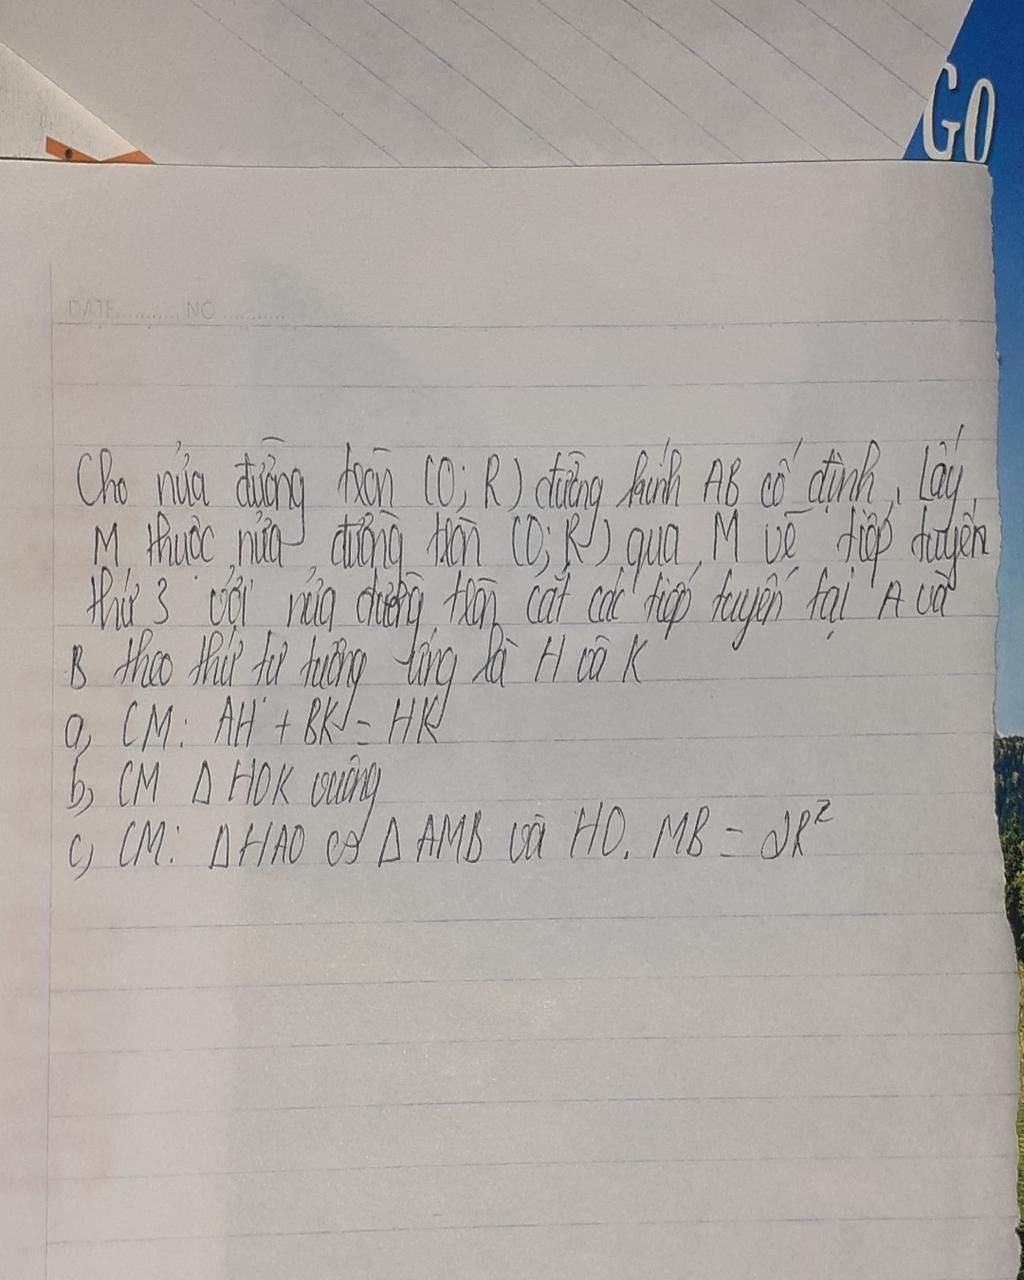 GO
DATE.......... NO ..........
Cho nửa đường tròn (O; R) đường kính AB cố định. Lấy
M thuộc nửa đường tròn (O; R) qua M vẽ tiếp tuyến
thứ 3 với nửa đường tròn cắt các tiếp tuyến tại A và
B theo thứ tự tương ứng là H và K
a, CM: AH + BK = HK
b, CM Δ HOK vuông
c, CM: Δ HAO ∽ Δ AMB và HO. MB = 2R²